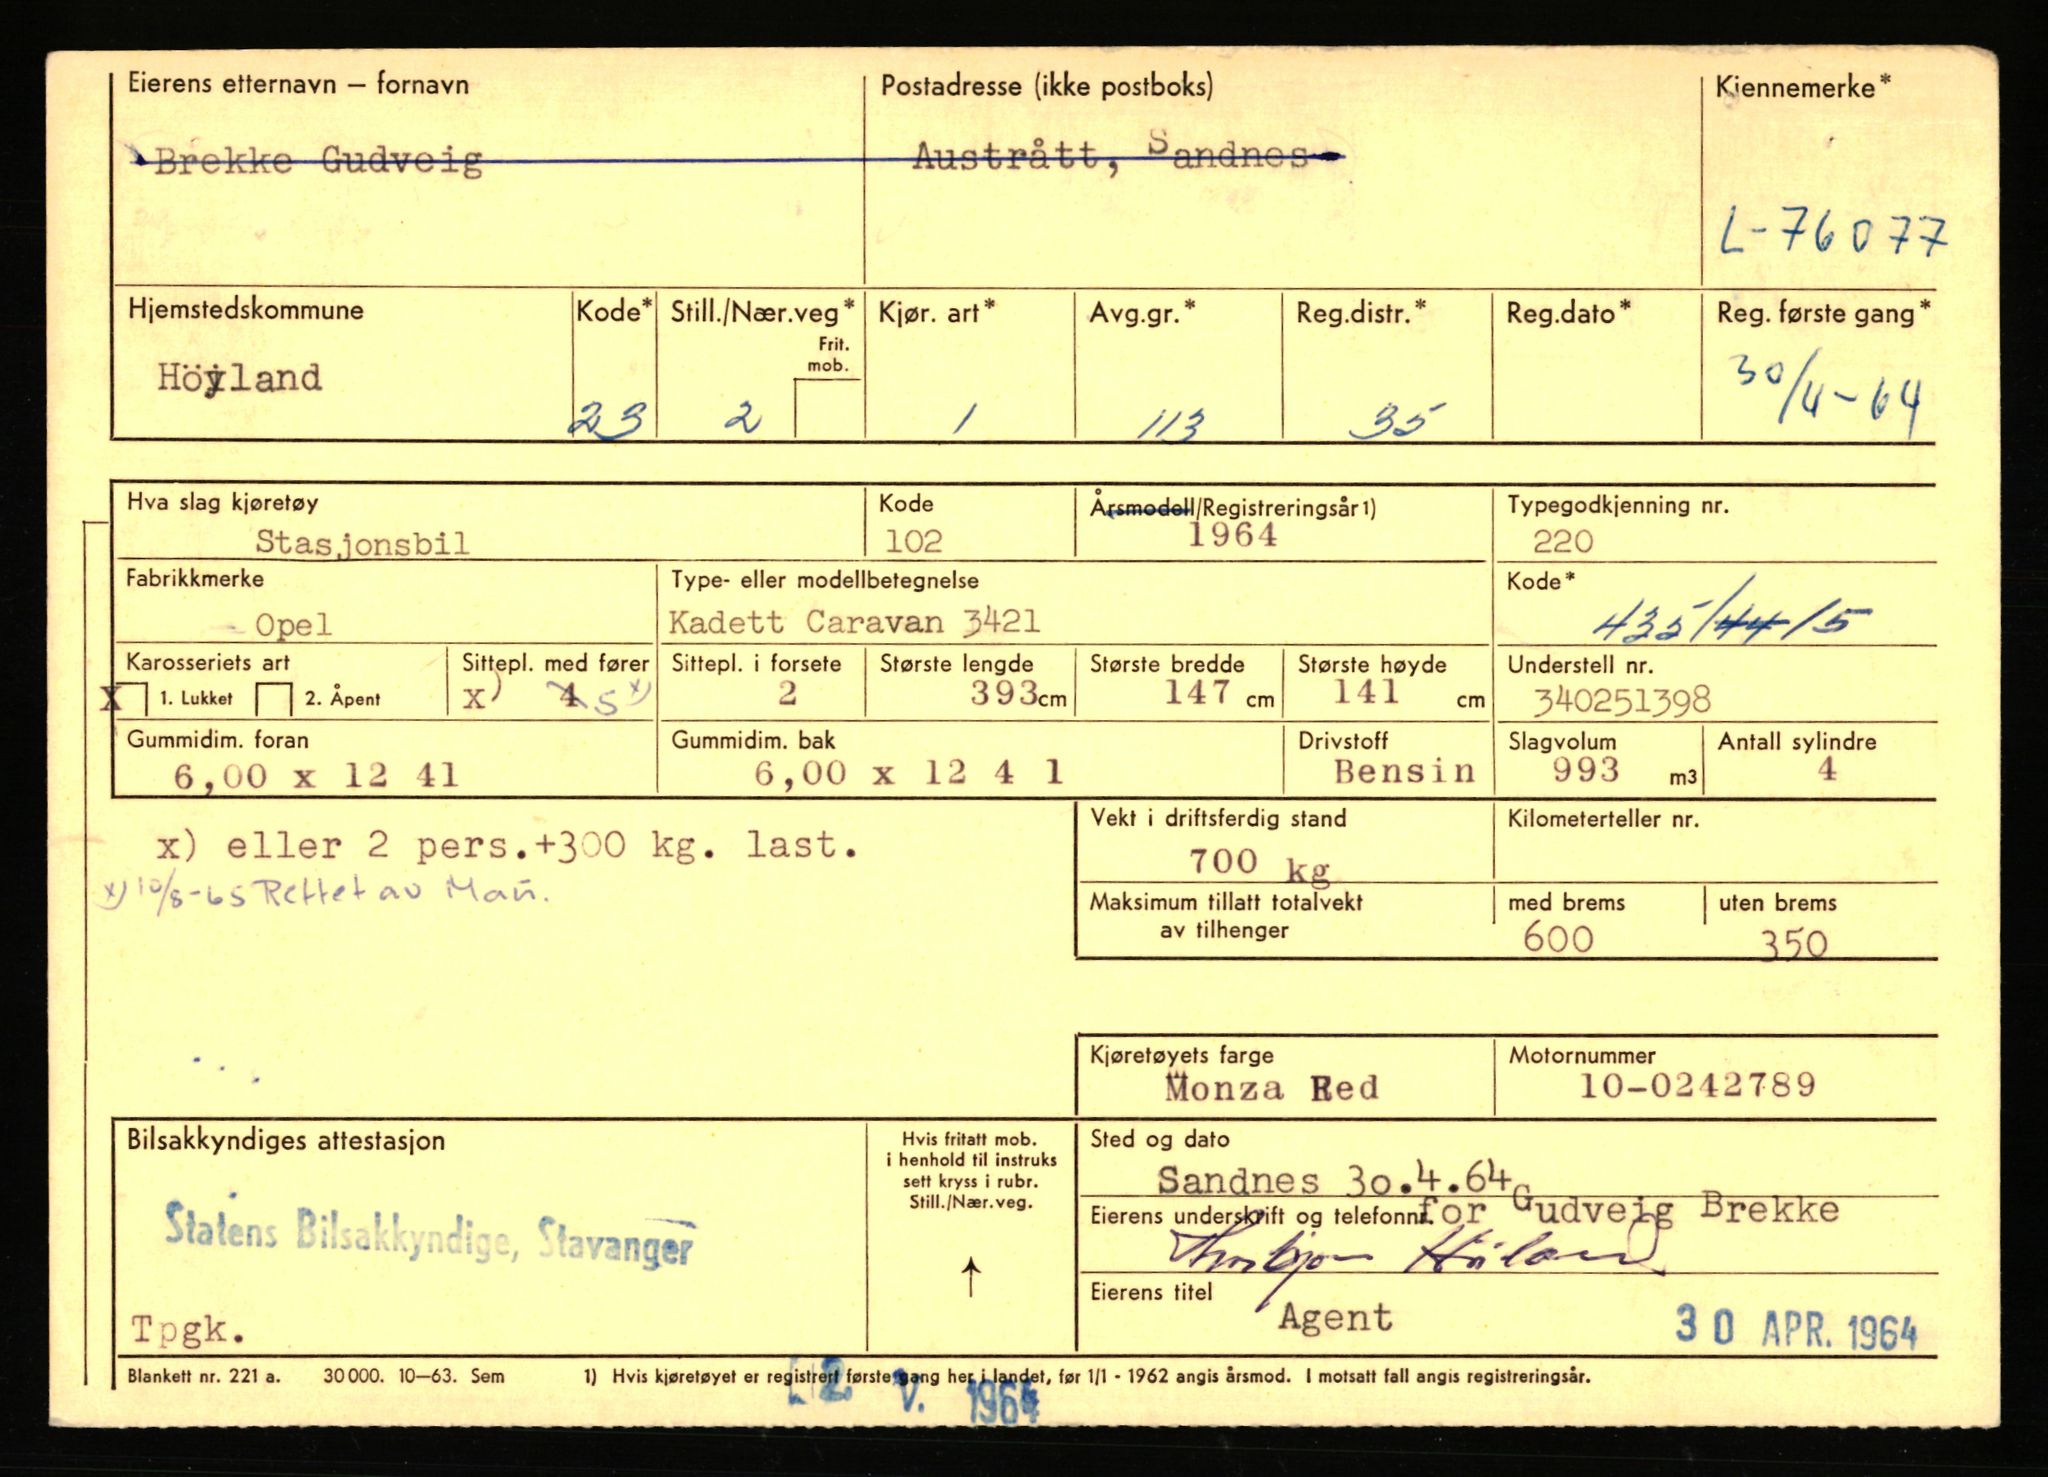 Eierens etternavn – fornavn
Postadresse (ikke postboks)
Kjennemerke*
Brekke Gudveig
Austrått, Sandnes
L-76077
Hjemstedskommune
Kode*
Still./Nær.veg*
Kjør. art*
Avg.gr.*
Reg.distr.*
Reg.dato*
Reg. første gang*
Frit.
mob.
Höyland
23
2
1
113
35
30/4-64
Hva slag kjøretøy
Kode
Årsmodell/Registreringsår 1)
Typegodkjenning nr.
Stasjonsbil
102
1964
220
Fabrikkmerke
Type- eller modellbetegnelse
Kode*
Opel
Kadett Caravan 3421
435/44/5
Karosseriets art
Sittepl. med fører
Sittepl. i forsete
Største lengde
Største bredde
Største høyde
Understell nr.
X 1. Lukket
2. Åpent
x) 4 5 x)
2
393 cm
147 cm
141 cm
340251398
Gummidim. foran
Gummidim. bak
Drivstoff
Slagvolum
Antall sylindre
6,00 x 12 41
6,00 x 12 4 1
Bensin
993 m3
4
x) eller 2 pers.+300 kg. last.
x) 10/8-65 Rettet av
Vekt i driftsferdig stand
Kilometerteller nr.
700 kg
Maksimum tillatt totalvekt
av tilhenger
med brems
uten brems
600
350
Kjøretøyets farge
Motornummer
Monza Red
10-0242789
Bilsakkyndiges attestasjon
Hvis fritatt mob.
i henhold til instruks
sett kryss i rubr.
Still./Nær.veg.
Sted og dato
Sandnes 30.4.64
Eierens underskrift og telefonnr.
for Gudveig Brekke
Statens Bilsakkyndige, Stavanger
Eierens titel
Agent
30 APR. 1964
Tpgk.
Blankett nr. 221 a. 30000. 10–63. Sem
1) Hvis kjøretøyet er registrert første gang her i landet, før 1/1 - 1962 angis årsmod. I motsatt fall angis registreringsår.
2 V. 1964